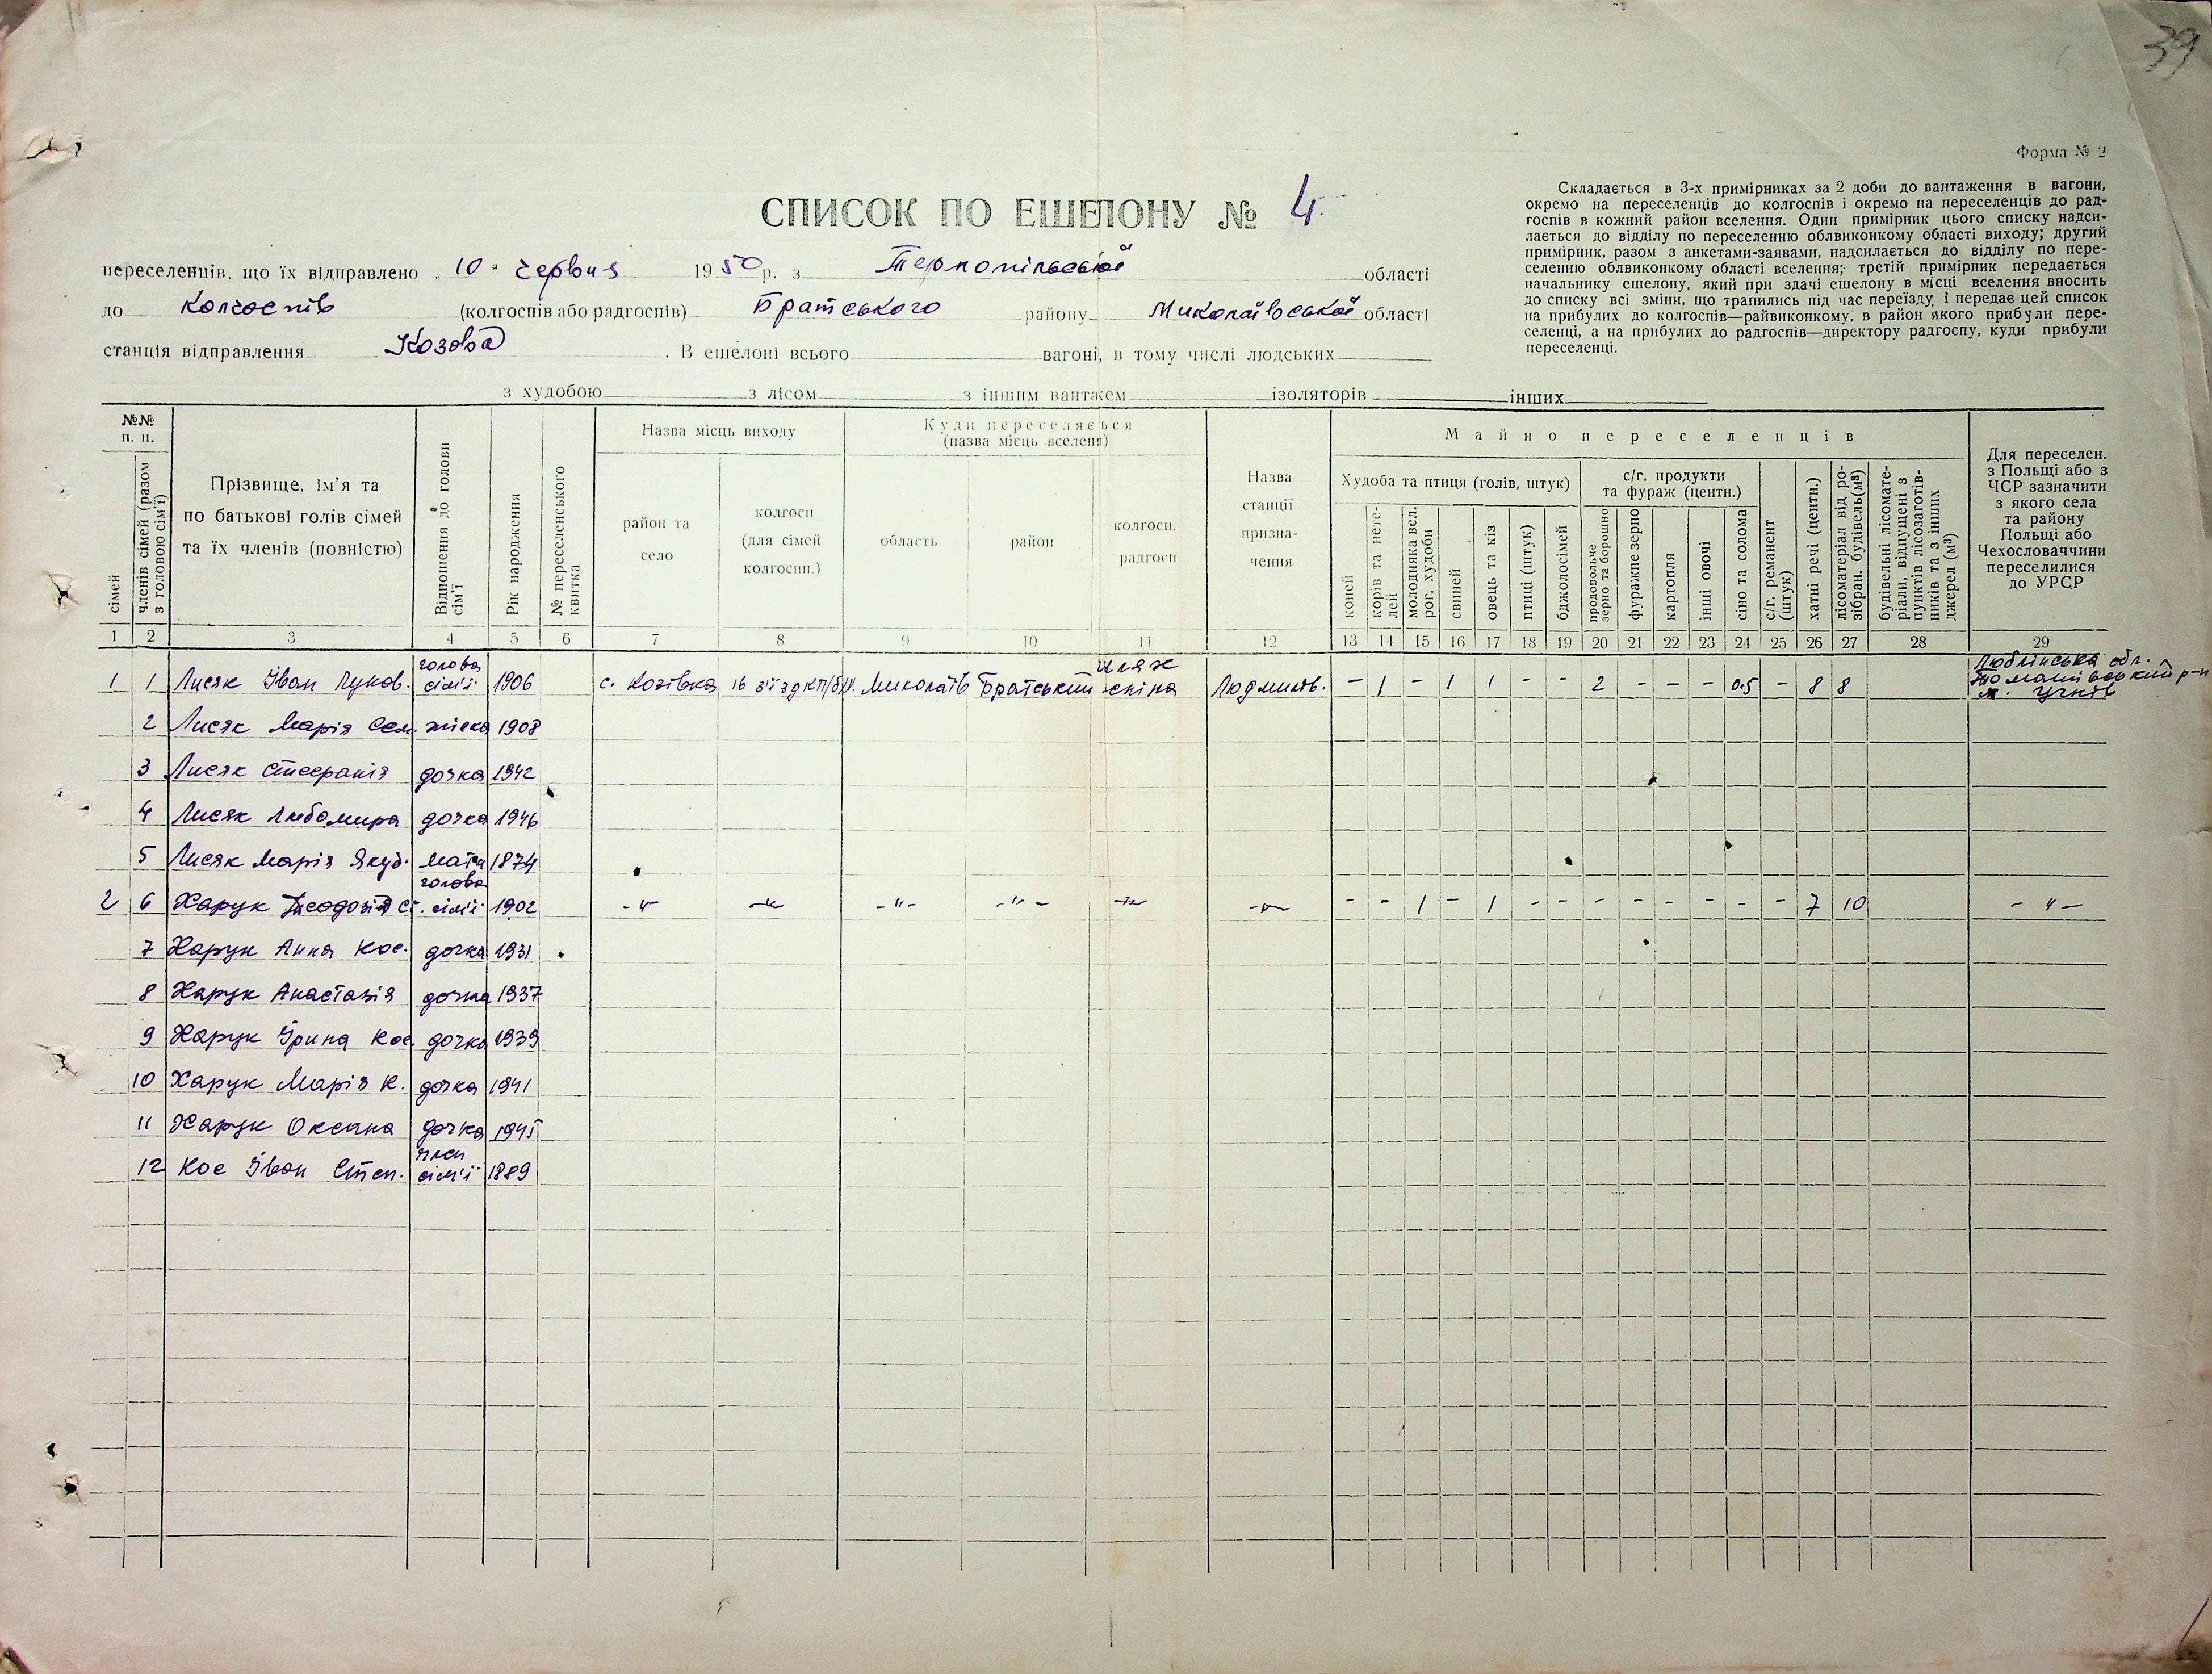 39
Форма № 2
СПИСОК ПО ЕШЕЛОНУ № 4
Складається в 3-х примірниках за 2 доби до вантаження в вагони,
окремо на переселенців до колгоспів і окремо на переселенців до рад-
госпів в кожний район вселення. Один примірник цього списку надси-
лається до відділу по переселенню облвиконкому області виходу; другий
примірник, разом з анкетами-заявами, надсилається до відділу по пере-
селенню облвиконкому області вселення; третій примірник передається
начальнику ешелону, який при здачі ешелону в місці вселення вносить
до списку всі зміни, що трапились під час переїзду, і передає цей список
на прибулих до колгоспів—райвиконкому, в район якого прибули пере-
селенці, а на прибулих до радгоспів—директору радгоспу, куди прибули
переселенці.
переселенців, що їх відправлено „10" червня 1950 р. з Тернопільської області
до колгоспів (колгоспів або радгоспів) Братського району Миколаївської області
станція відправлення Козова. В ешелоні всього вагоні, в тому числі людських
з худобою з лісом з іншим вантажем ізоляторів інших
№№ п. п.
сімей
членів сімей (разом з головою сім'ї)
Прізвище, ім'я та
по батькові голів сімей
та їх членів (повністю)
Відношення до голови сім'ї
Рік народження
№ переселенського квитка
Назва місць виходу
район та
село
колгосп
(для сімей
колгоспн.)
Куди переселяється
(назва місць вселеня)
область
район
колгосп,
радгосп
Назва
станції
призна-
чення
Майно переселенців
Худоба та птиця (голів, штук)
коней
корів та нете-
лей
молодняка вел.
рог. худоби
свиней
овець та кіз
птиці (штук)
бджолосімей
с/г. продукти
та фураж (центн.)
продовольче
зерно та борошно
фуражне зерно
картопля
інші овочі
сіно та солома
с/г. реманент
(штук)
хатні речі (центн.)
лісоматеріал від ро-
зібран. будівель(м³)
будівельні лісомате-
ріали, відпущені з
пунктів лісозаготів-
ників та з інших
джерел (м³)
Для переселен.
з Польщі або з
ЧСР зазначити
з якого села
та району
Польщі або
Чехословаччини
переселилися
до УРСР
1 2 3 4 5 6 7 8 9 10 11 12 13 14 15 16 17 18 19 20 21 22 23 24 25 26 27 28 29
1 1 Лисяк Іван Луков. голова сім'ї 1906 с. Козівка 16 з'їзд КП/б/У. Миколаїв Братський шлях Людмилів. - 1 - 1 1 - - 2 - - - 0.5 - 8 8 Люблінська обл. Томашівський р-н
2 Лисяк Марія Сем. жінка 1908
3 Лисяк Стефанія дочка 1942
4 Лисяк Любомира дочка 1946
5 Лисяк Марія Якуб. мати 1874
2 6 Харук Теодозія Ст. голова сім'ї 1902 -"- -"- -"- -"- -"- -"- - - 1 - 1 - - - - - - - - 7 10 -"-
7 Харук Анна Кос. дочка 1931
8 Харук Анастазія дочка 1937
9 Харук Ірина Кос. дочка 1939
10 Харук Марія К. дочка 1941
11 Харук Оксана дочка 1945
12 Кос Іван Степ. член сім'ї 1889